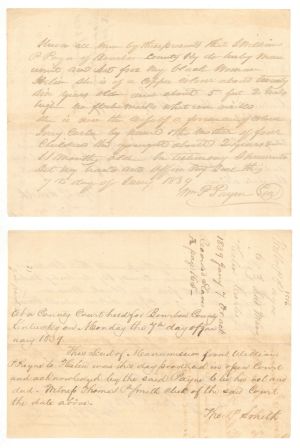 Know all men by these presents that I William
P Payne of Bourbon County Ky do hereby man
umit and set free my black Woman
Helen she is of a copper colour about twenty
six years old and about 5 feet 2 inches
high no flesh marks that are visible
she is now the wife of a free man of colour
Tony Carter by name & the mother of four
Children the youngest about 2 years and
11 months old. In testimony I hereunto
Set my hand and affix my Seal this
7th day of Jany 1839
Wm P Payne Seal
1839 Jany 7
At a County Court held for Bourbon County
Kentucky on Monday the 7th day of Jan
uary 1839
This deed of Manumission from William
P Payne to Helen was this day produced in open Court
and acknowledged by the said Payne to be his act and
deed. Witness Thomas P Smith clerk of the said Court
the date above.
Tho. P. Smith